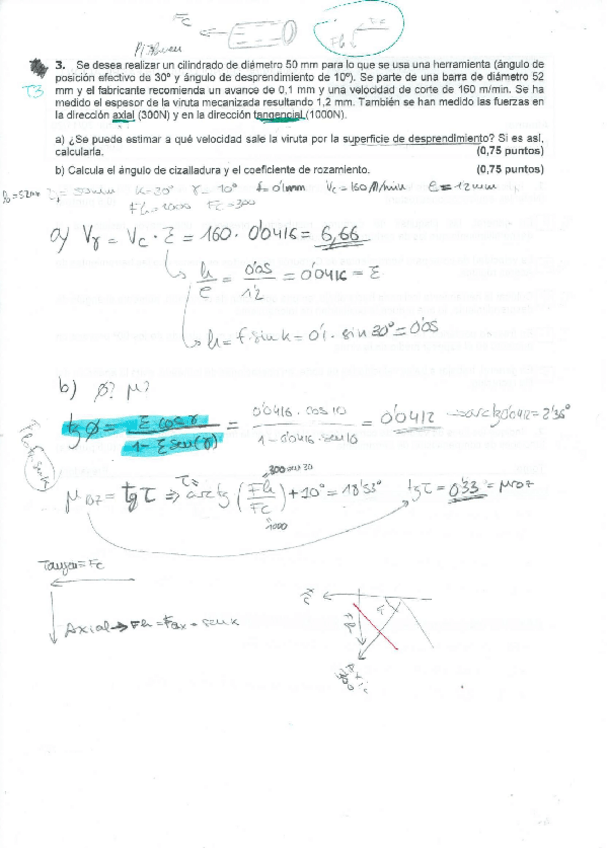 Fc
Fh
3. Se desea realizar un cilindrado de diámetro 50 mm para lo que se usa una herramienta (ángulo de
posición efectivo de 30º y ángulo de desprendimiento de 10º). Se parte de una barra de diámetro 52
mm y el fabricante recomienda un avance de 0,1 mm y una velocidad de corte de 160 m/min. Se ha
medido el espesor de la viruta mecanizada resultando 1,2 mm. También se han medido las fuerzas en
la dirección axial (300N) y en la dirección tangencial (1000N).
T3
a) ¿Se puede estimar a qué velocidad sale la viruta por la superficie de desprendimiento? Si es así,
calcularla. (0,75 puntos)
b) Calcula el ángulo de cizalladura y el coeficiente de rozamiento. (0,75 puntos)
γ = 10º f = 0'1mm Vc = 160 M/min e = 12mm
Fh = 1000 Fc = 300
a) Vγ = Vc · ξ = 160 · 0'0416 = 6,66
h/e = 0'05/1'2 = 0'0416 = ξ
h = f · sin k = 0'1 · sin 30º = 0'05
b) ϕ? μ?
tg ϕ = ξ cos γ / 1 - ξ sen(γ) = 0'0416 · cos 10 / 1 - 0'0416 · sen 10 = 0'0412 → arctg 0'0412 = 2'36º
μ = tg τ ⇒ arctg (Fh/Fc) + 10º = 18'53º tg τ = 0'33 = μ
1000
= Fc
Axial → Fh = Fax · sen k